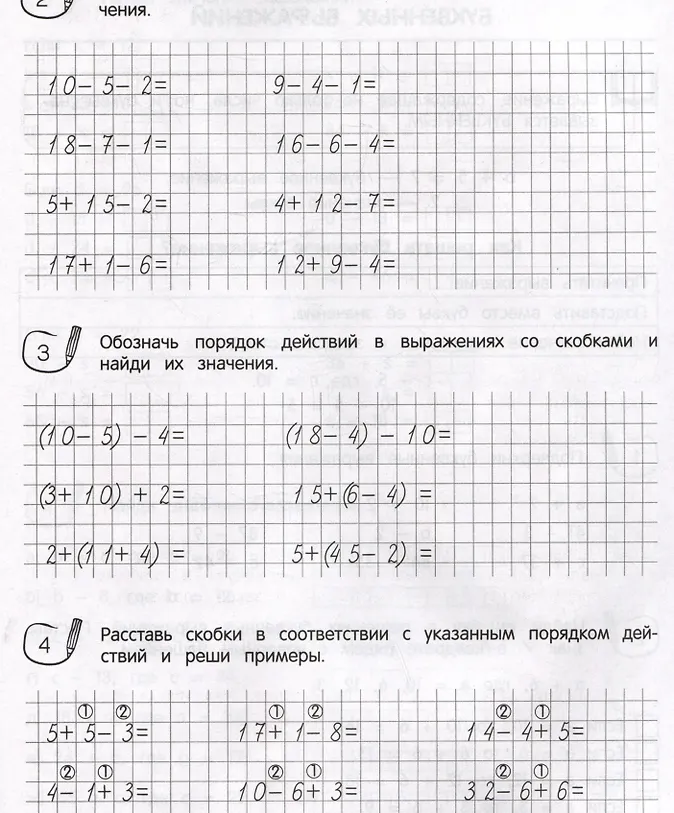 2
чения.
10-5-2= 9-4-1=
18-7-1= 16-6-4=
5+15-2= 4+12-7=
17+1-6= 12+9-4=
3 Обозначь порядок действий в выражениях со скобками и
найди их значения.
(10-5)-4= (18-4)-10=
(3+10)+2= 15+(6-4)=
2+(11+4)= 5+(45-2)=
4 Расставь скобки в соответствии с указанным порядком дей-
ствий и реши примеры.
① ② ① ② ② ①
5+5-3= 17+1-8= 14-4+5=
② ① ② ① ② ①
4-1+3= 10-6+3= 32-6+6=